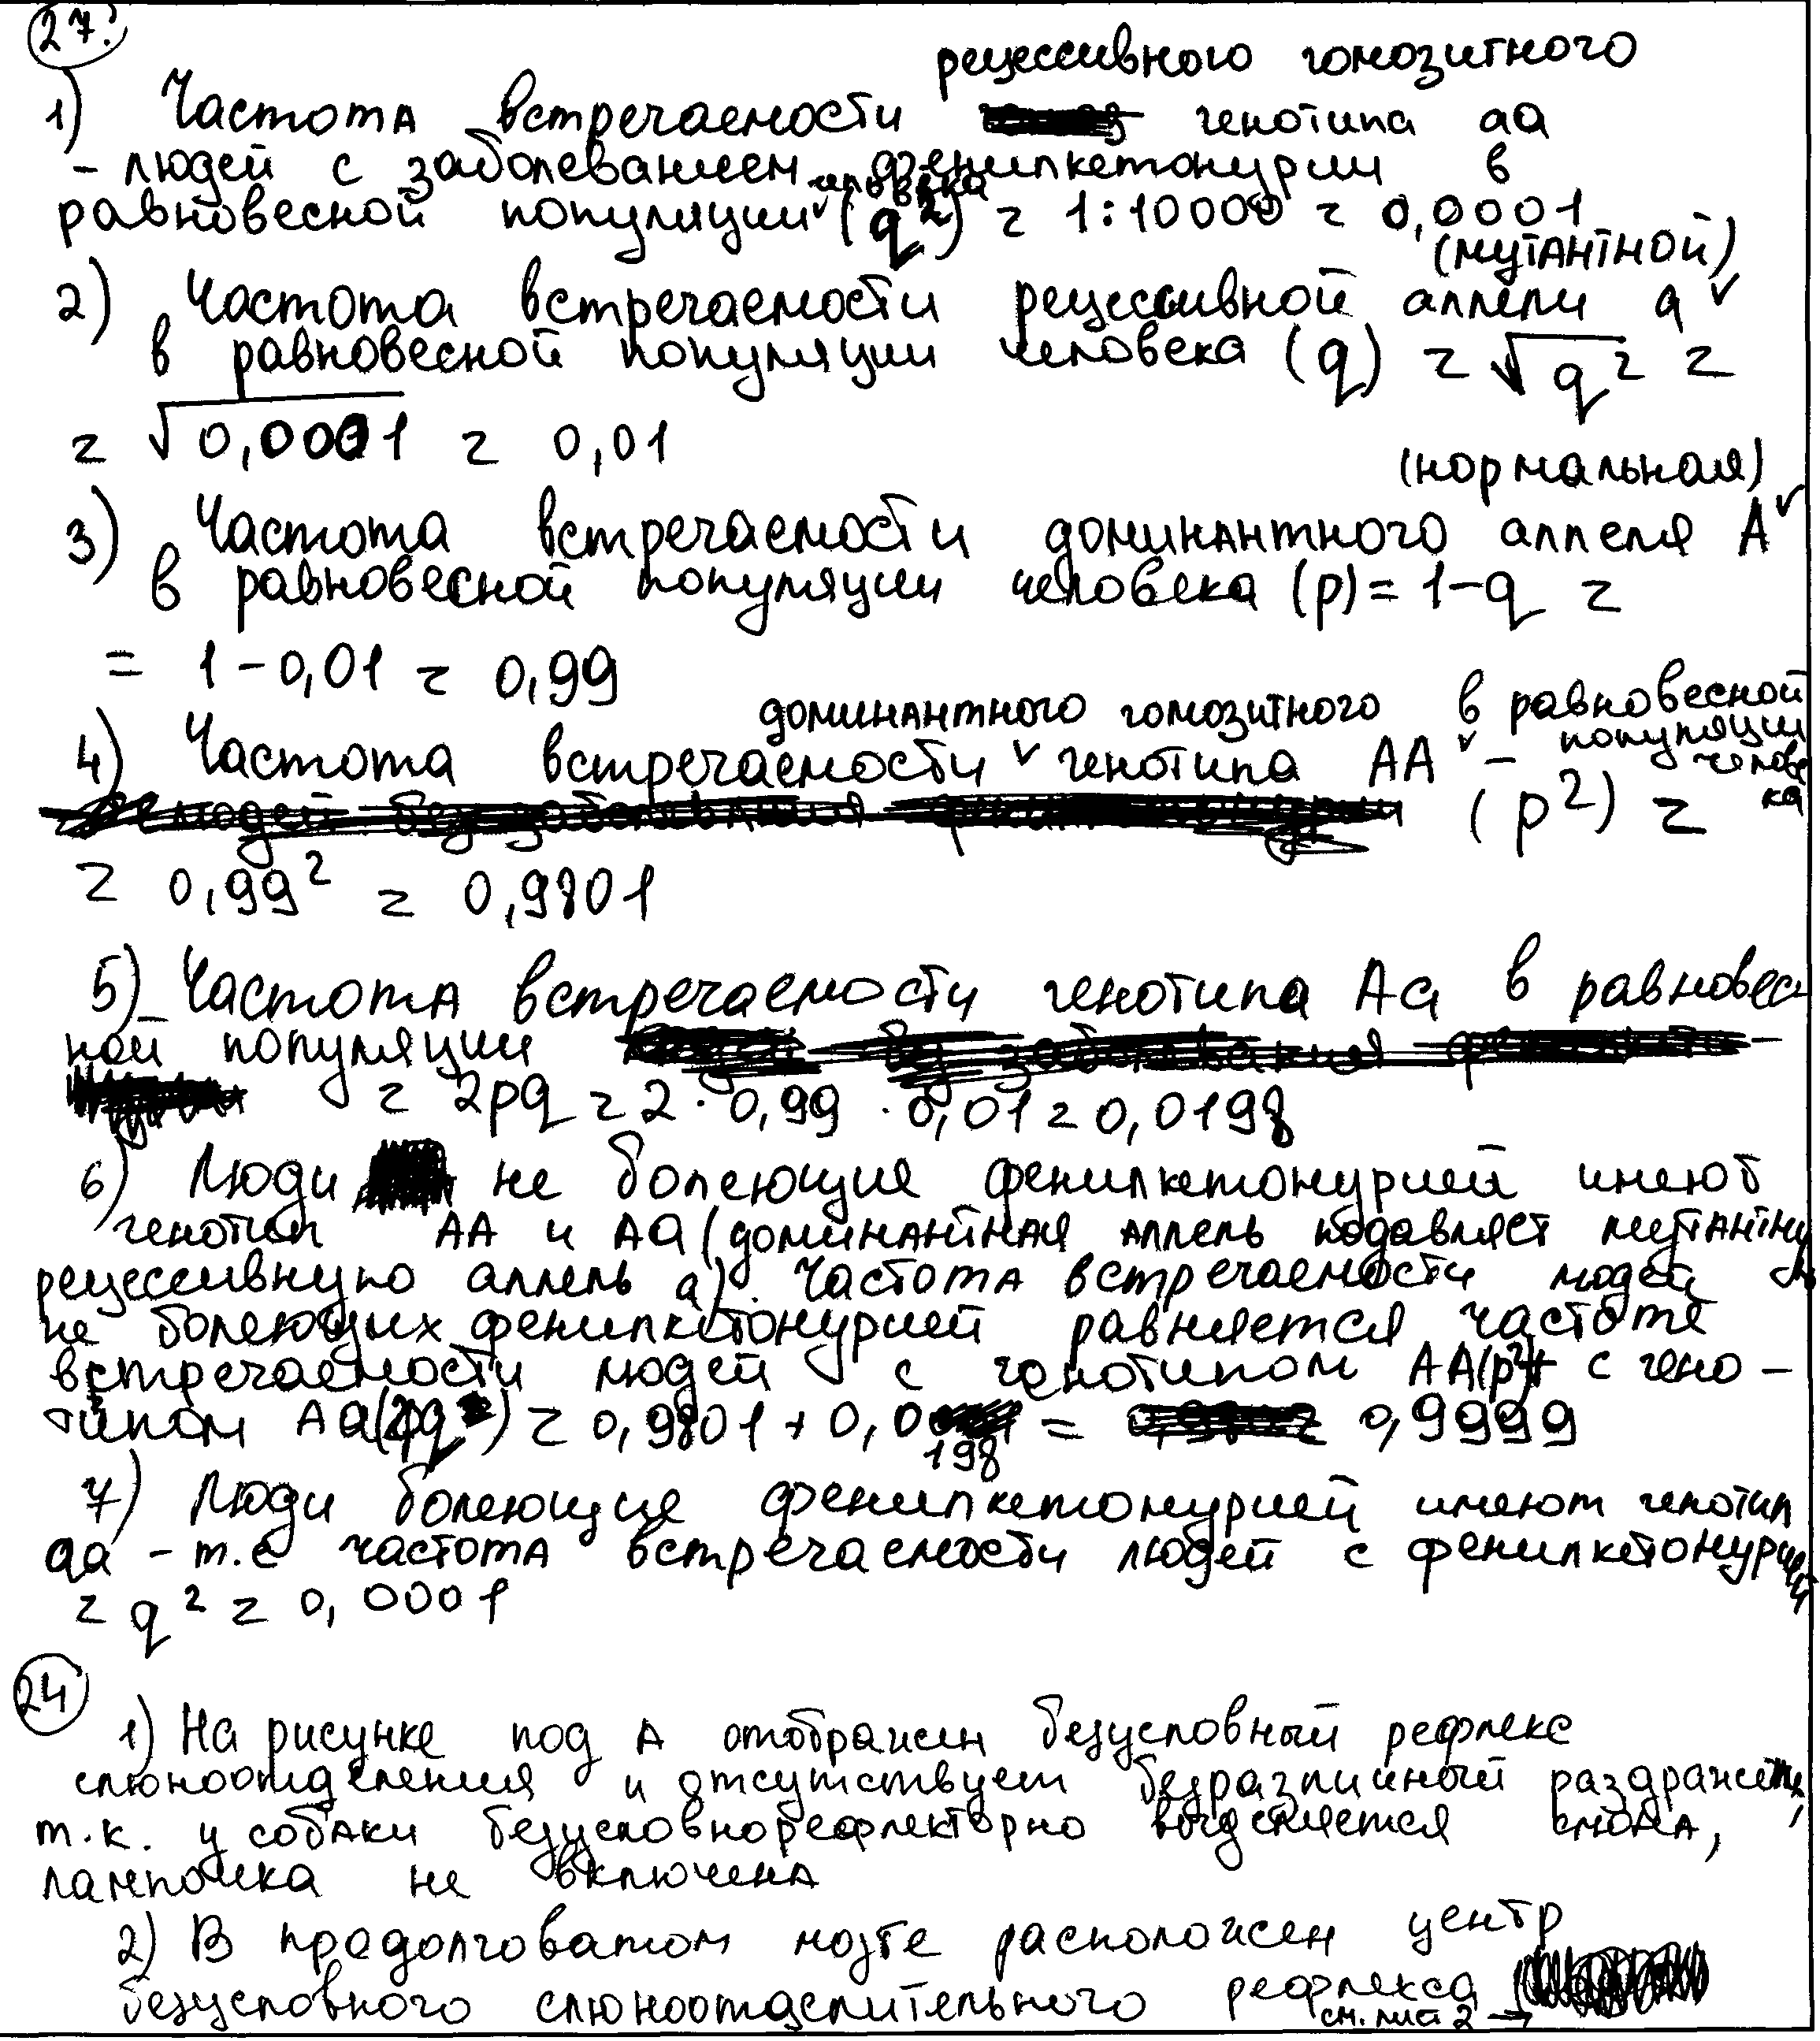 27.
рецессивного гомозитного
1) Частота встречаемости генотипа аа
- людей с заболеванием фенилкетонурии в
человека
равновесной популяции (q²) = 1:10000 = 0,0001
(мутантной)
2) Частота встречаемости рецессивной аллели а
в равновесной популяции человека (q) = √q² =
= √0,0001 = 0,01
(нормальная)
3) Частота встречаемости доминантного аллеля А
в равновесной популяции человека (p) = 1-q =
= 1-0,01 = 0,99
доминантного гомозитного в равновесной
популяции
4) Частота встречаемости генотипа АА -
челове
ка
(p²) =
= 0,99² = 0,9801
5) Частота встречаемости генотипа Аа в равновес-
ной популяции
= 2pq = 2 · 0,99 · 0,01 = 0,0198
6) Люди не болеющие фенилкетонурией имеют
генотип АА и Аа (доминантная аллель подавляет мутантну
рецессивную аллель а). Частота встречаемости людей
не болеющих фенилкетонурией равняется частоте
встречаемости людей с генотипом АА(p²)+ с гено-
типом Аа(2pq) = 0,9801 + 0,0198 = 0,9999
7) Люди болеющие фенилкетонурией имеют генотип
аа - т.е частота встречаемости людей с фенилкетонурией
= q² = 0,0001
24
1) На рисунке под А отображен безусловный рефлекс
слюноотделения и отсутствует безразличный раздражитель,
т.к. у собаки безусловнорефлекторно выделяется слюна,
лампочка не включена
2) В продолговатом мозге расположен центр
безусловного слюноотделительного рефлекса
см. лист 2 →